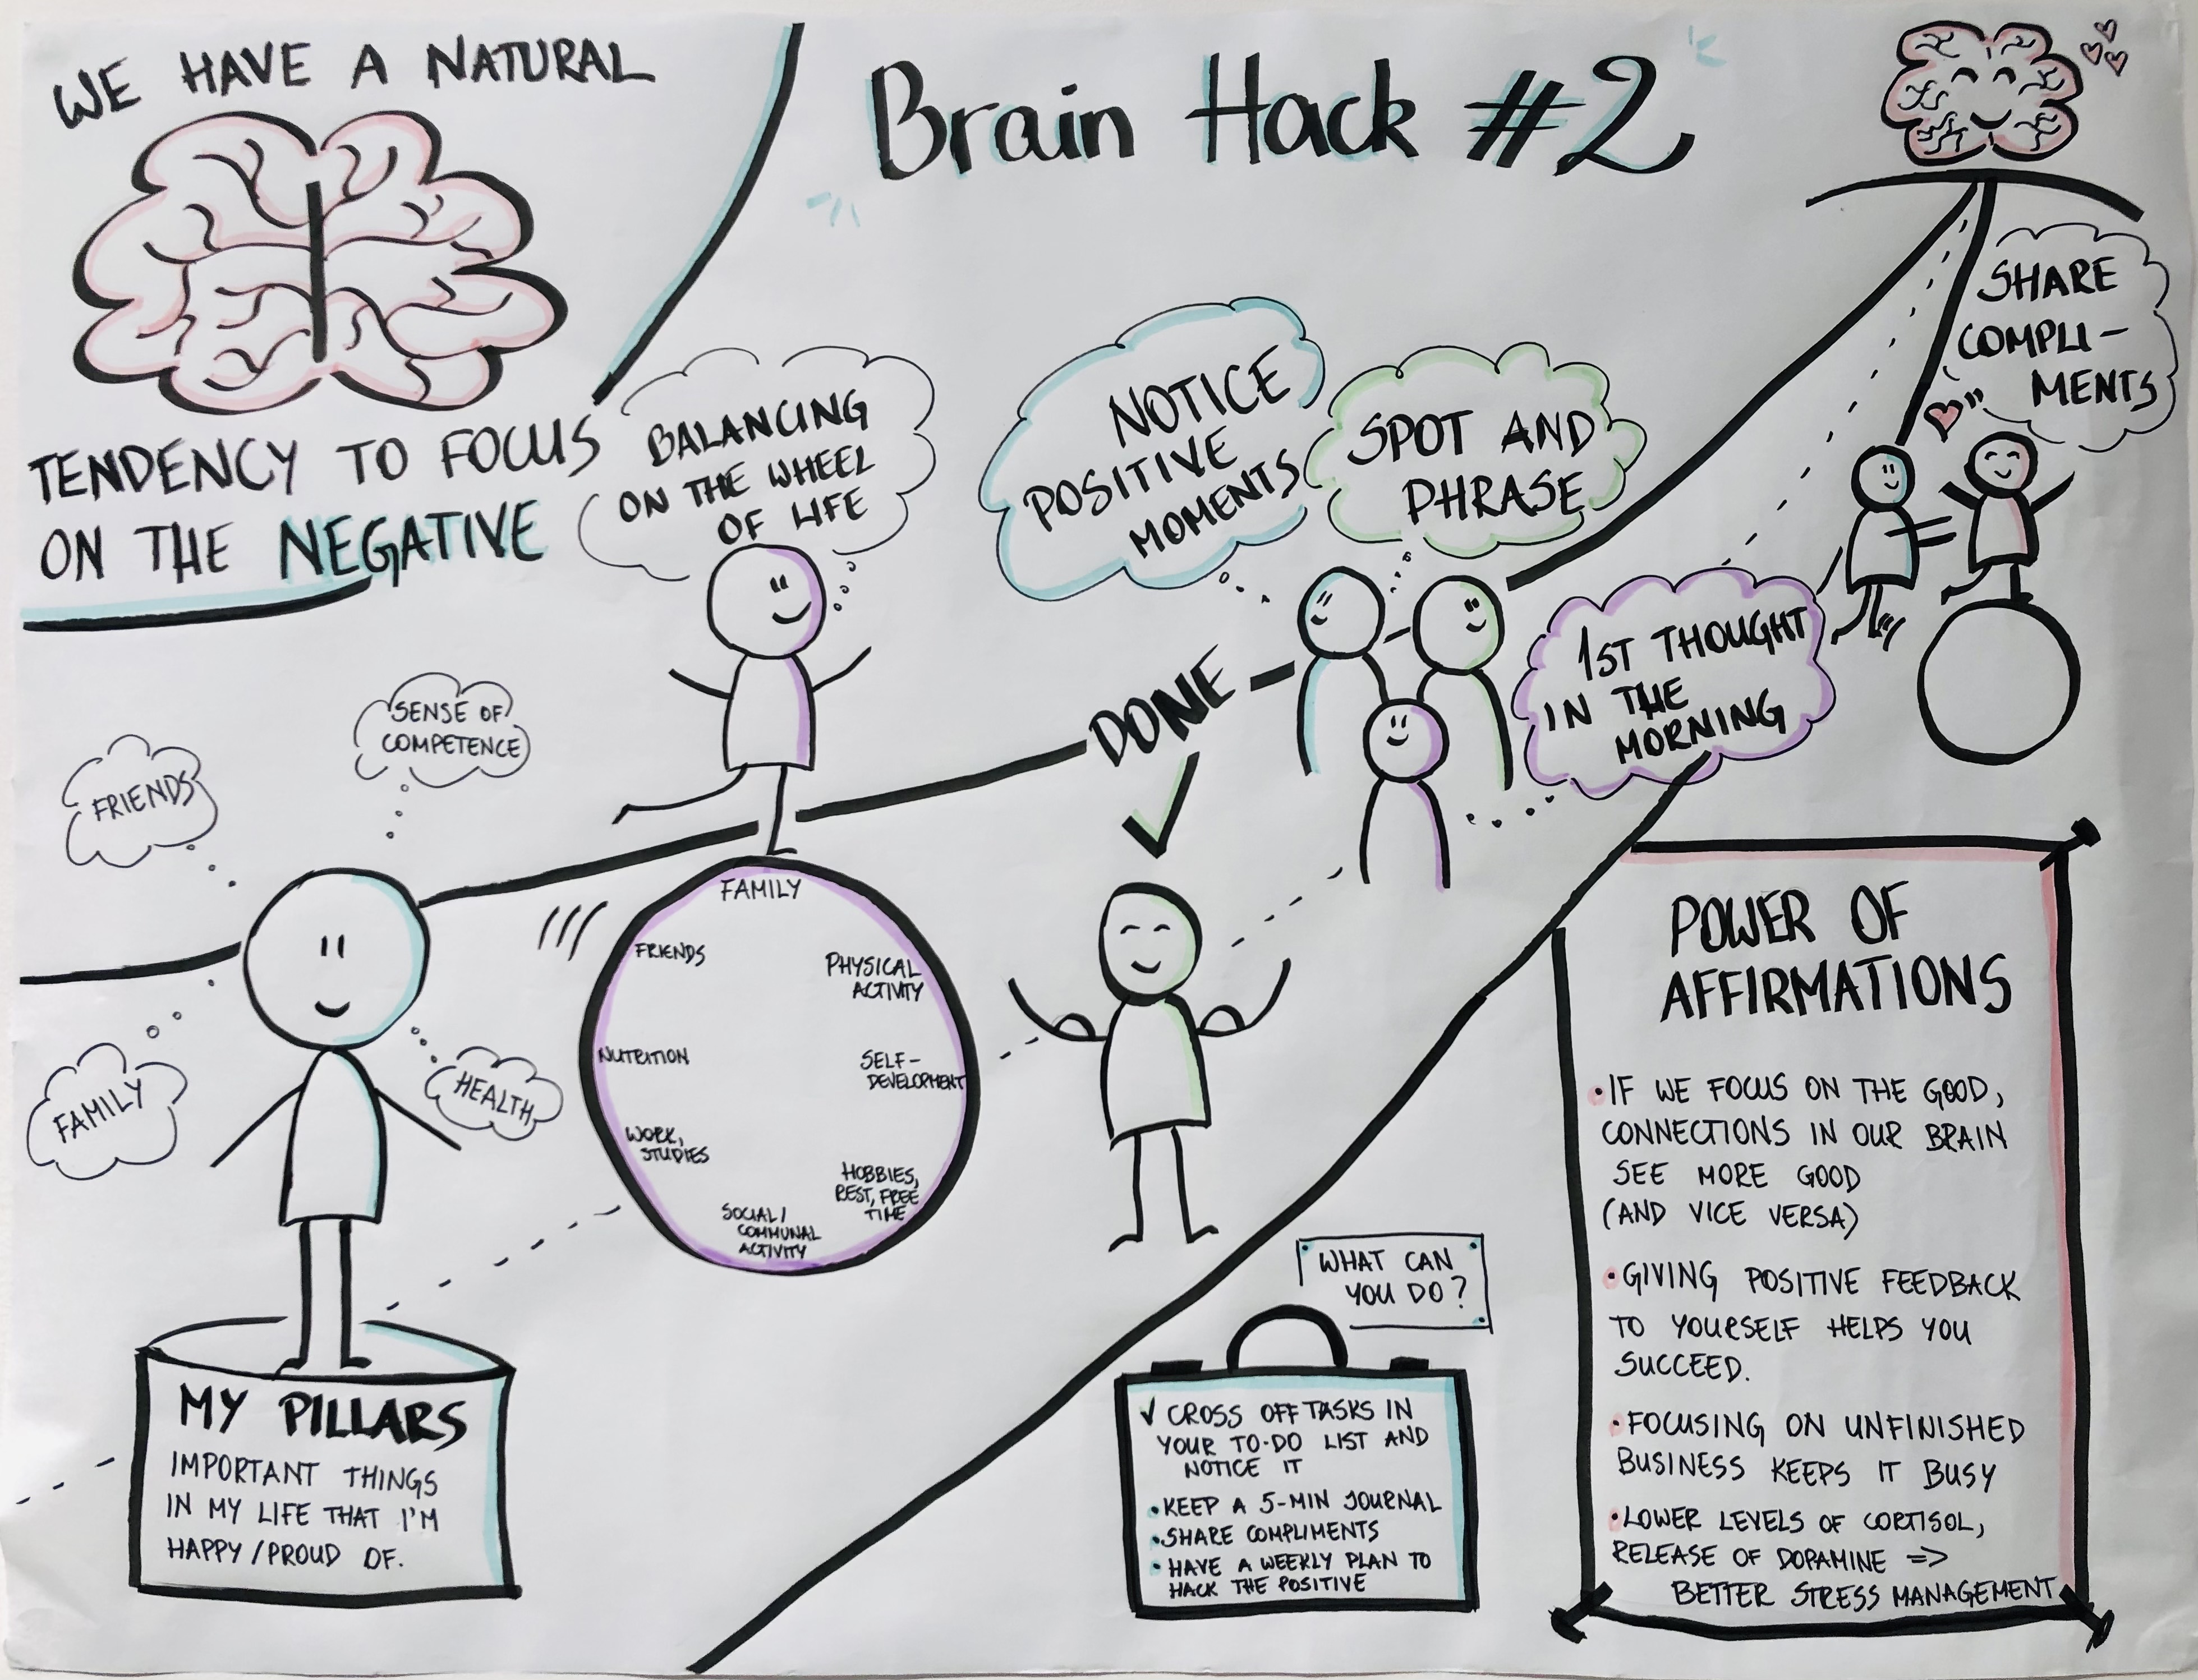 WE HAVE A NATURAL
TENDENCY TO FOCUS
ON THE NEGATIVE
Brain Hack #2
BALANCING
ON THE WHEEL
OF LIFE
NOTICE
POSITIVE
MOMENTS
SPOT AND
PHRASE
SHARE
COMPLI-
MENTS
1ST THOUGHT
IN THE
MORNING
DONE
SENSE OF
COMPETENCE
FRIENDS
FAMILY
HEALTH
MY PILLARS
IMPORTANT THINGS
IN MY LIFE THAT I'M
HAPPY/PROUD OF.
FAMILY
FRIENDS
PHYSICAL
ACTIVITY
NUTRITION
SELF-
DEVELOPMENT
WORK,
STUDIES
HOBBIES,
REST, FREE
TIME
SOCIAL/
COMMUNAL
ACTIVITY
WHAT CAN
YOU DO?
✓ CROSS OFF TASKS IN
YOUR TO-DO LIST AND
NOTICE IT
• KEEP A 5-MIN JOURNAL
• SHARE COMPLIMENTS
• HAVE A WEEKLY PLAN TO
HACK THE POSITIVE
POWER OF
AFFIRMATIONS
• IF WE FOCUS ON THE GOOD,
CONNECTIONS IN OUR BRAIN
SEE MORE GOOD
(AND VICE VERSA)
• GIVING POSITIVE FEEDBACK
TO YOURSELF HELPS YOU
SUCCEED.
• FOCUSING ON UNFINISHED
BUSINESS KEEPS IT BUSY
• LOWER LEVELS OF CORTISOL,
RELEASE OF DOPAMINE =>
BETTER STRESS MANAGEMENT